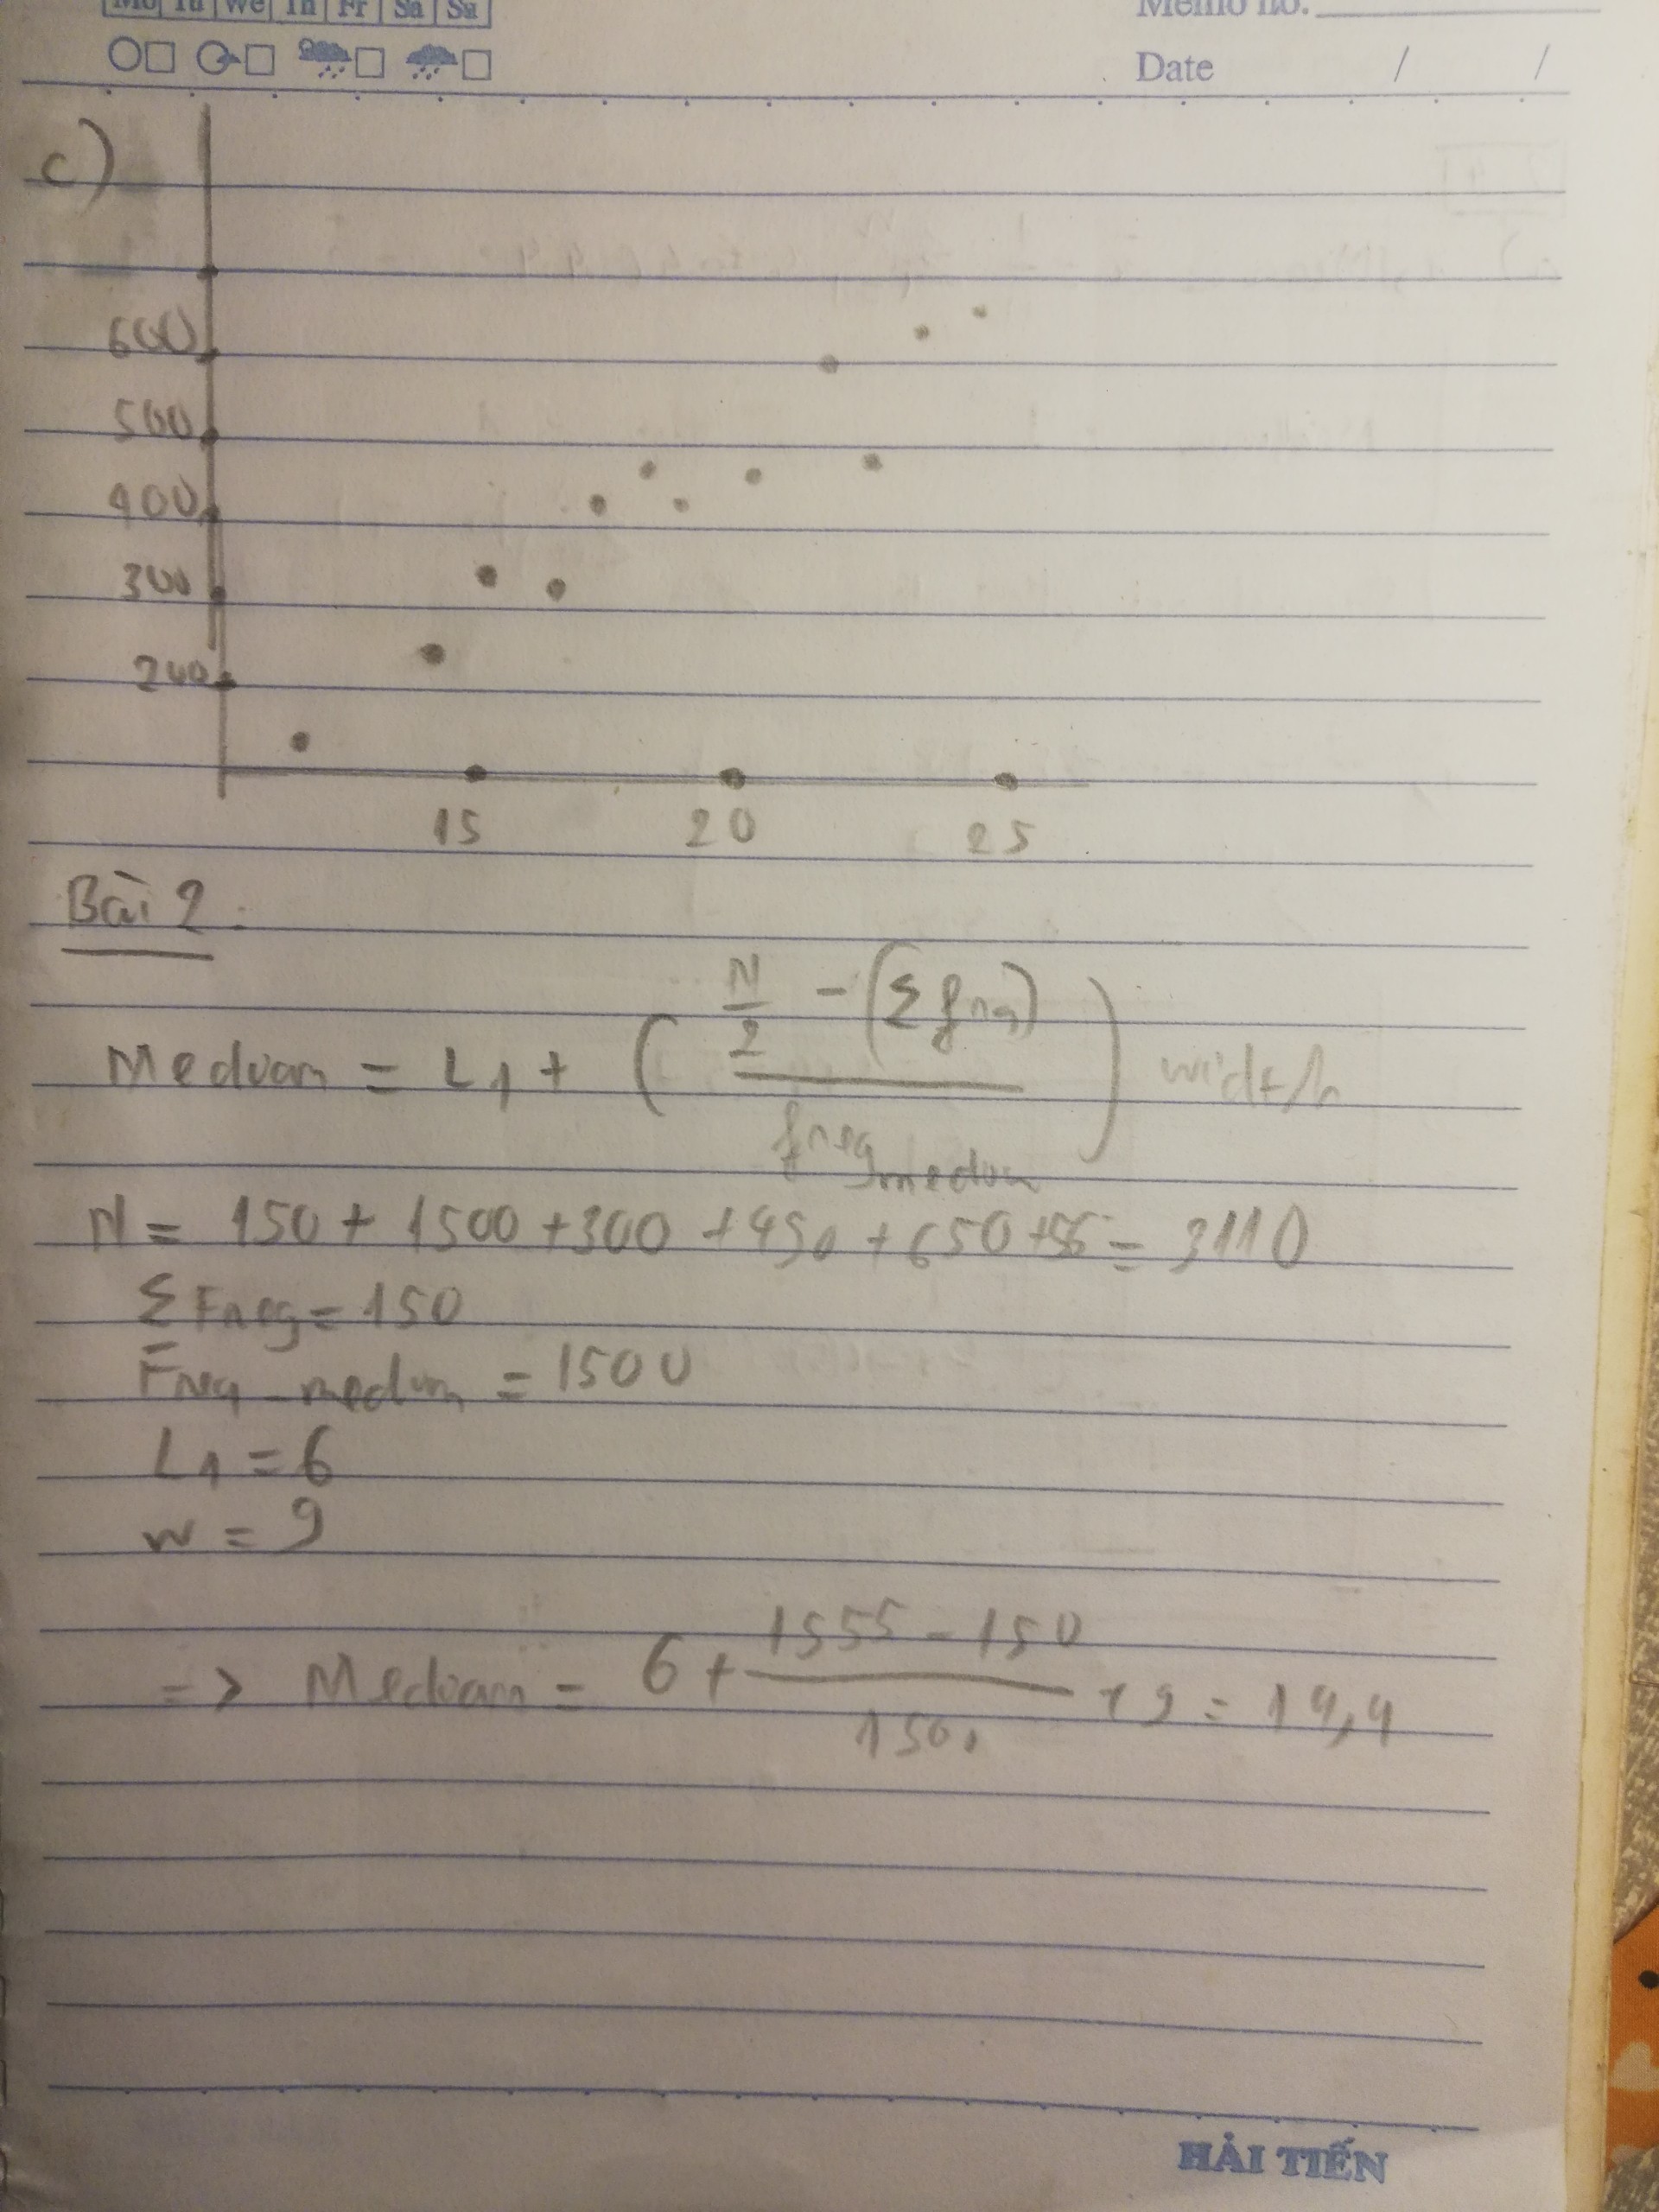 Mo Tu We Th Fr Sa Su
Memo no.
Date / /
c)
600
500
400
300
200
15 20 25
Bài 2:
Median = L1 + ( (N/2 - (Σ freq)) / freq median ) width
N = 150 + 1500 + 300 + 450 + 650 + 55 = 3110
Σ Freq = 150
Freq_median = 1500
L1 = 6
w = 9
=> Median = 6 + (1555 - 150) / 1500 × 9 = 14,4
HẢI TIẾN